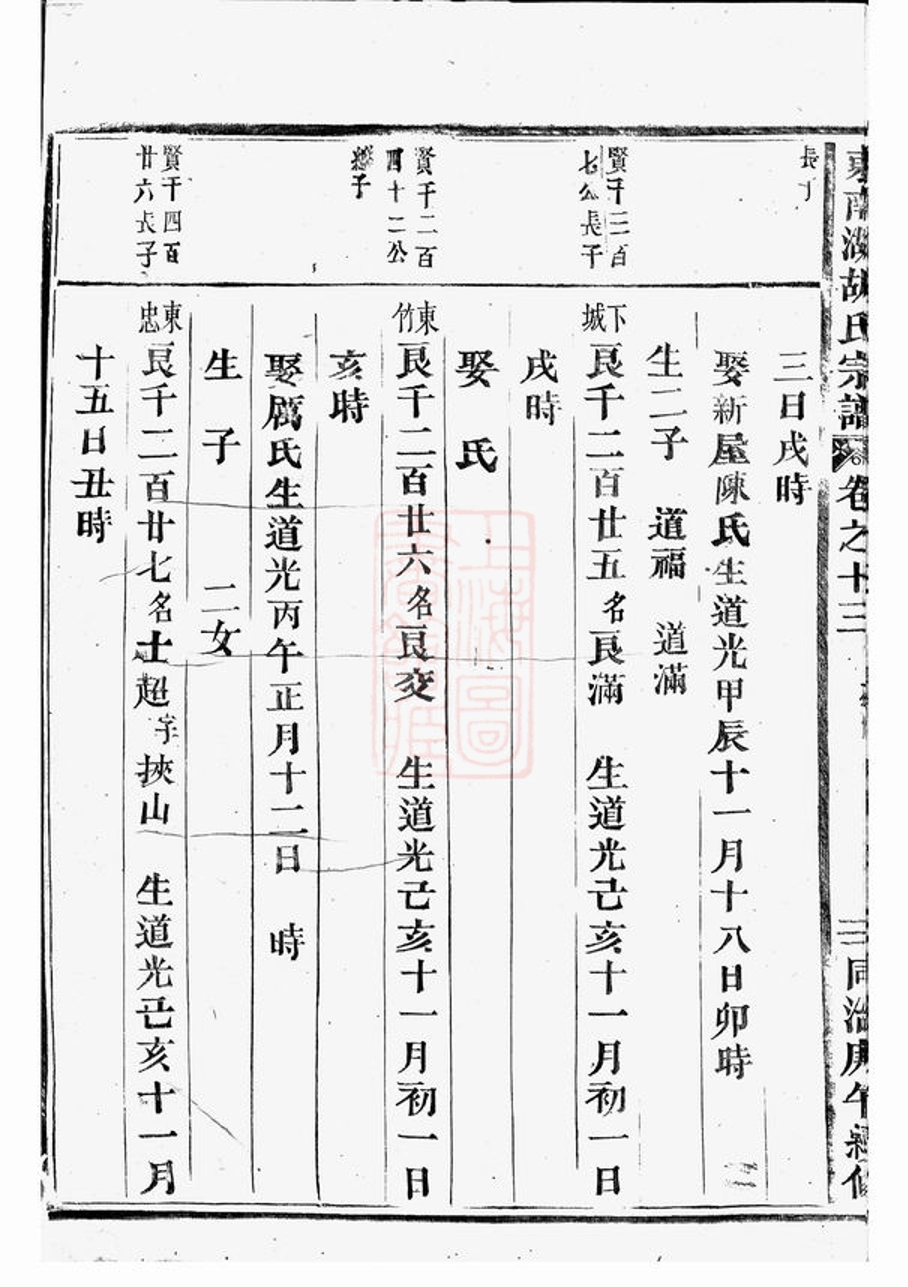 東南湖胡氏宗譜 卷之十三
同治庚午重修
長子
三日戌時
娶新屋陳氏生道光甲辰十一月十八日卯時
生二子 道福 道滿
賢千三百
七公長子
下城
良千二百廿五名良滿 生道光己亥十一月初一日
戌時
娶 氏
賢千二百
四十二公
繼子
東竹
良千二百廿六名良交 生道光己亥十一月初一日
亥時
娶厲氏生道光丙午正月十二日 時
生 子 二女
賢千四百
廿六長子
東忠
良千二百廿七名士超字挾山 生道光己亥十一月
十五日丑時
上海圖
書館藏